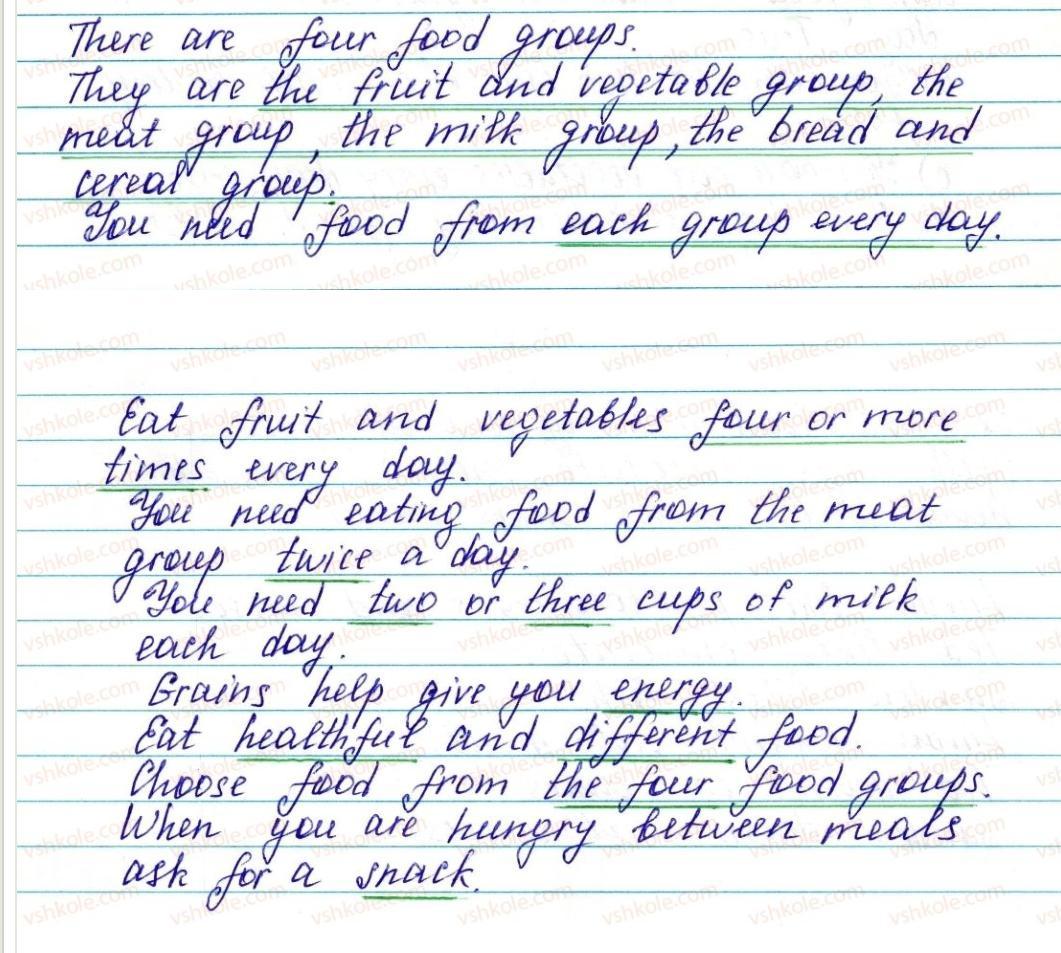 There are four food groups.
They are the fruit and vegetable group, the
meat group, the milk group, the bread and
cereal group.
You need food from each group every day.
Eat fruit and vegetables four or more
times every day.
You need eating food from the meat
group twice a day.
You need two or three cups of milk
each day.
Grains help give you energy.
Eat healthful and different food.
Choose food from the four food groups.
When you are hungry between meals
ask for a snack.
vshkole.com